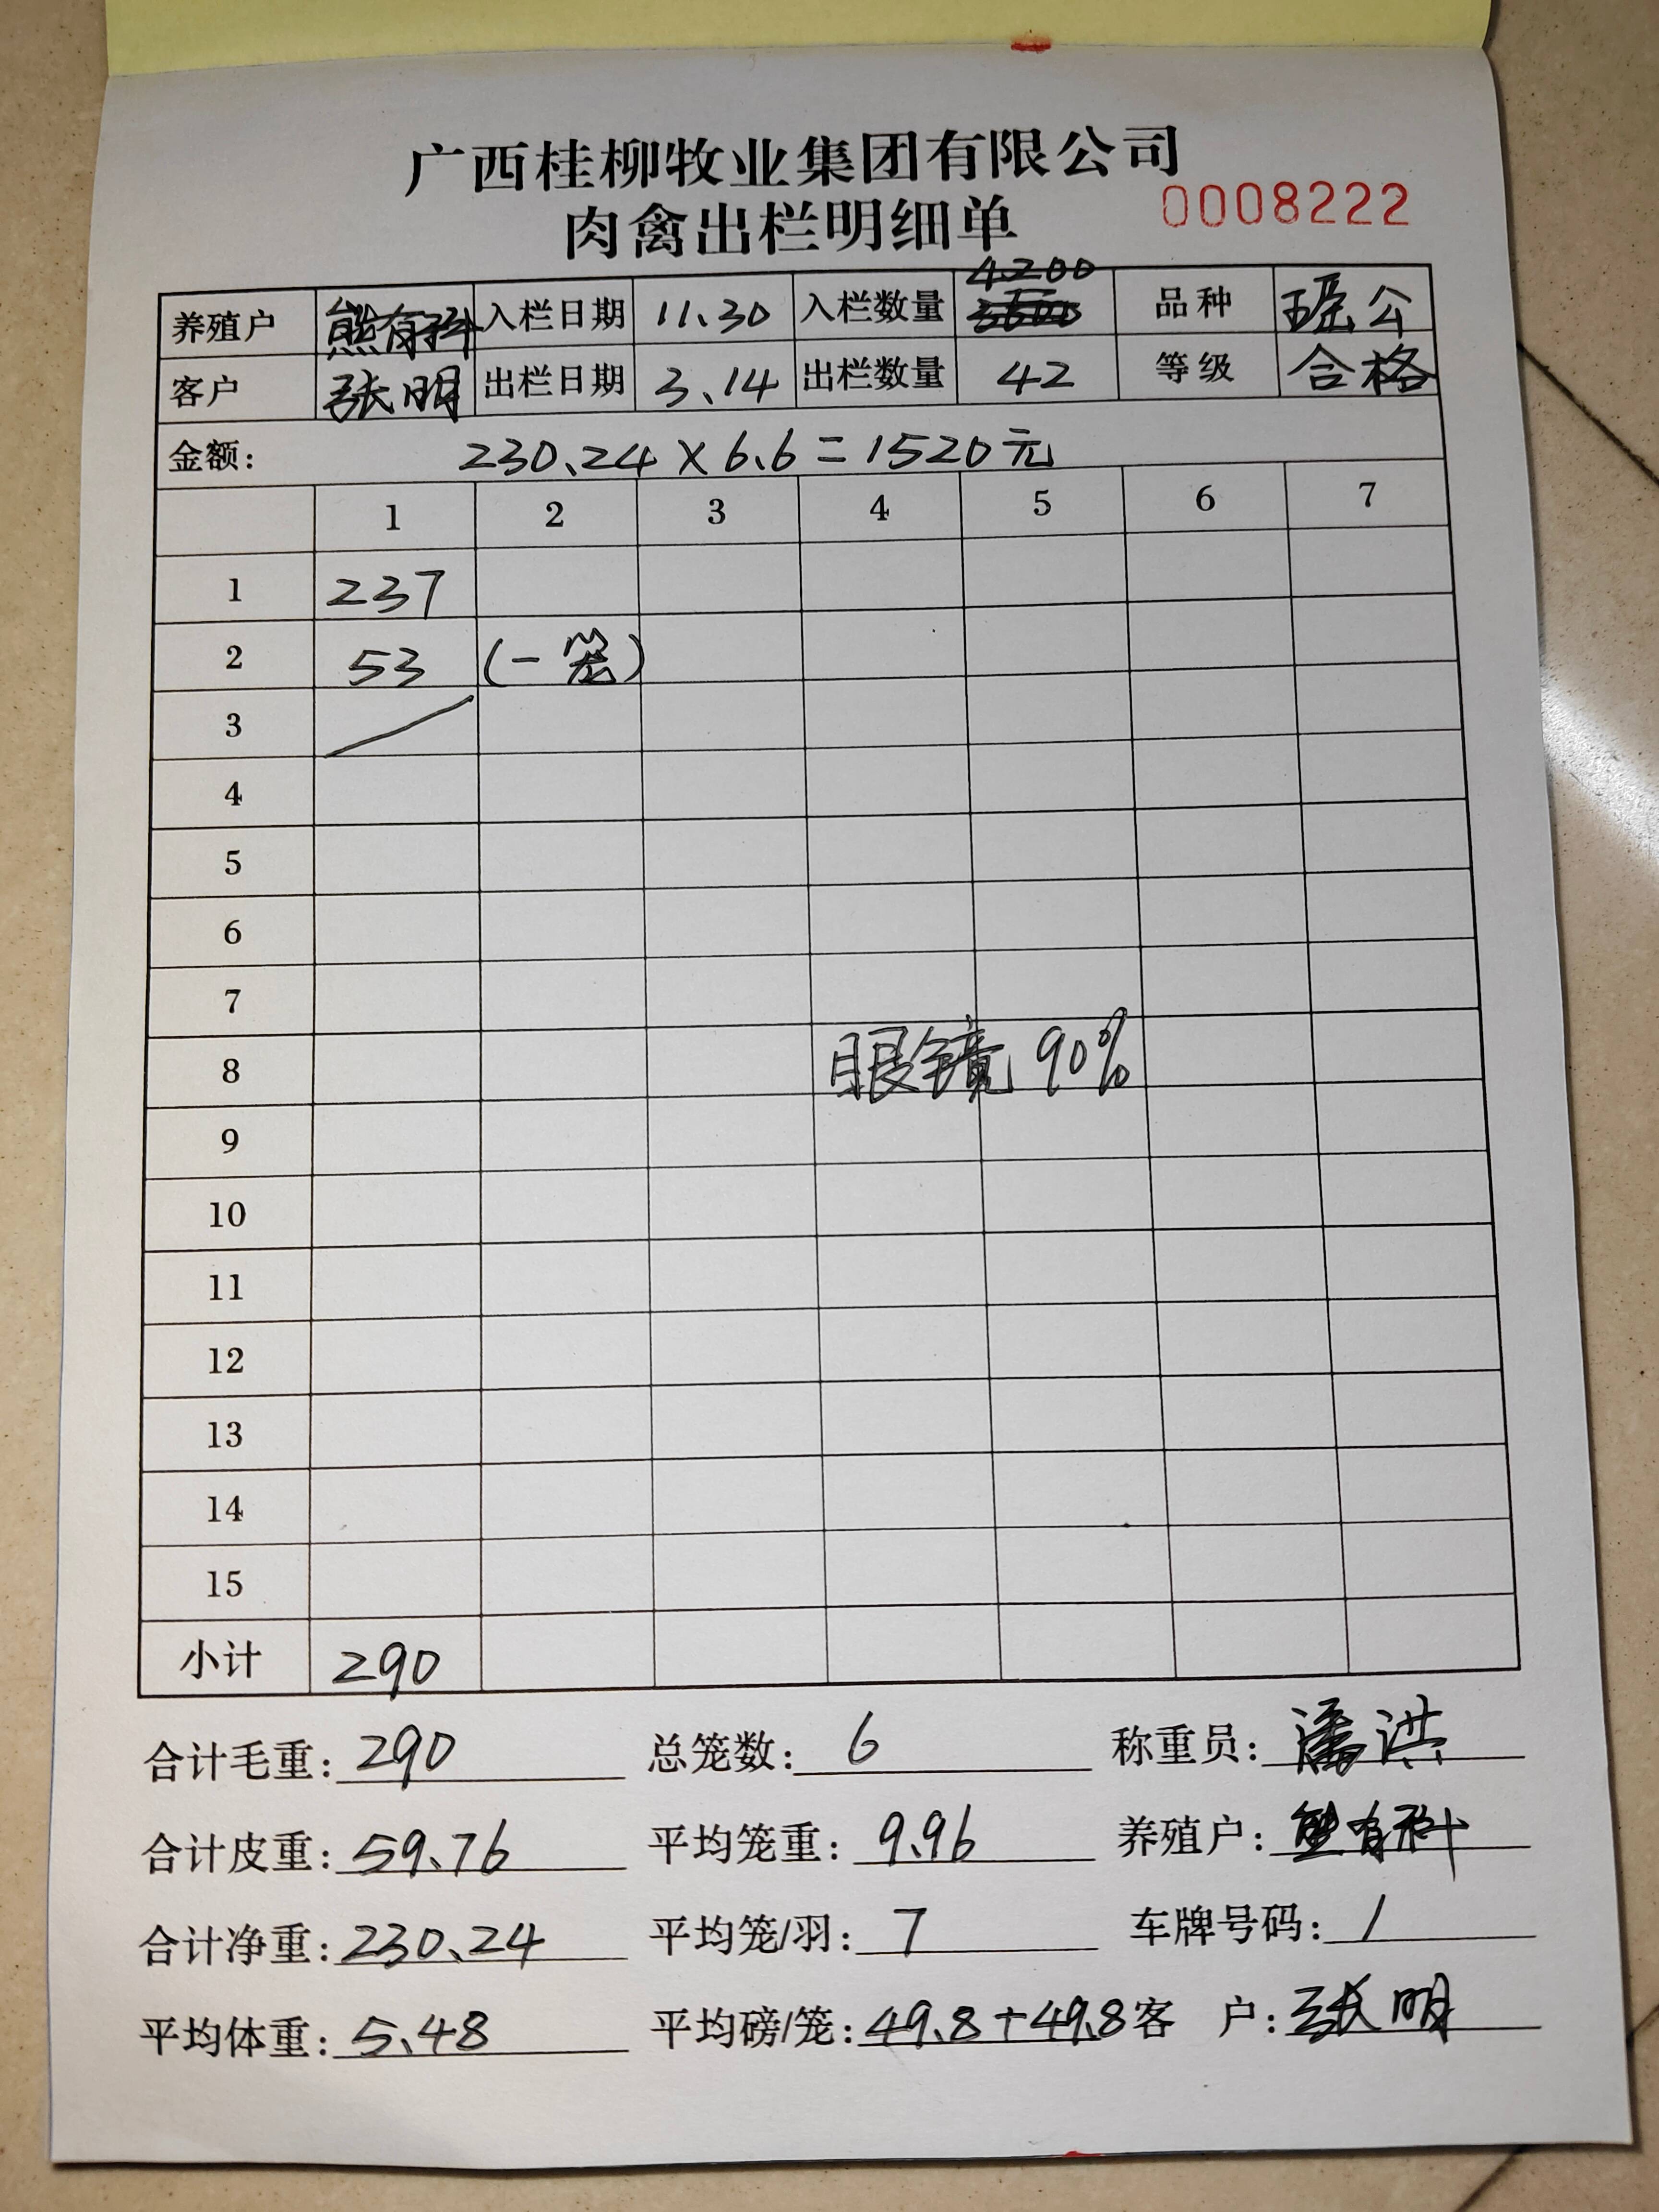 广西桂柳牧业集团有限公司
肉禽出栏明细单 0008222
养殖户 熊有科 入栏日期 11.30 入栏数量 4200 品种 瑶公
客户 张明 出栏日期 3.14 出栏数量 42 等级 合格
金额: 230.24 × 6.6 = 1520元
1 2 3 4 5 6 7
1 237
2 53 (一笼)
3
4
5
6
7
8 眼镜 90%
9
10
11
12
13
14
15
小计 290
合计毛重: 290 总笼数: 6 称重员: 潘洪
合计皮重: 59.76 平均笼重: 9.96 养殖户: 熊有科
合计净重: 230.24 平均笼/羽: 7 车牌号码: /
平均体重: 5.48 平均磅/笼: 49.8+49.8 客 户: 张明